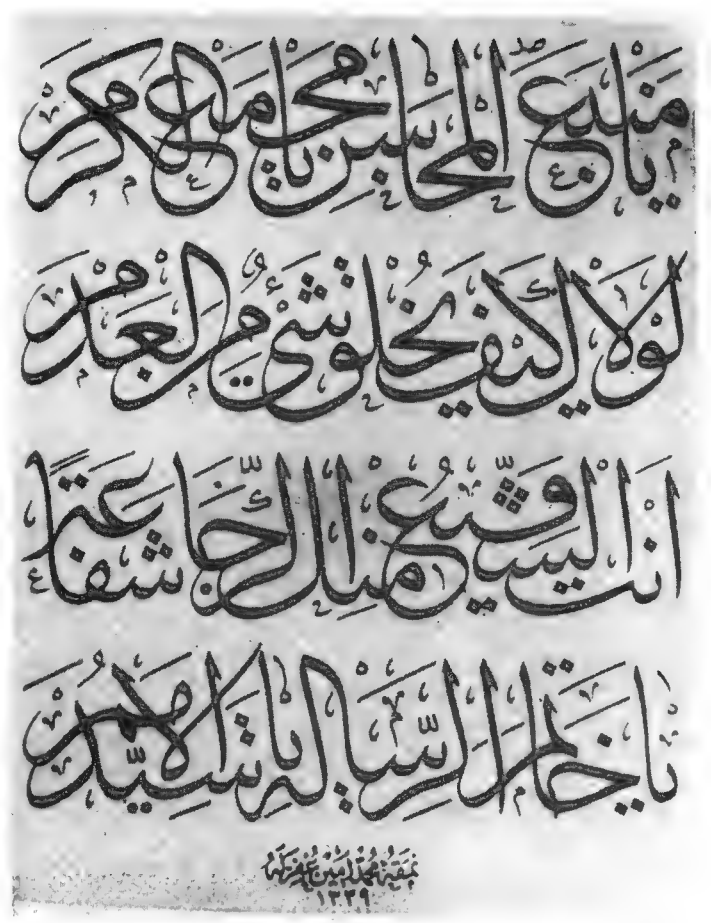 يا منبع المحاسن يا مجمع الكرم
لولاك كيف يخلق شئ من العدم
انت الشفيع منك الرجا شفاعة
يا خاتم الرسالة يا سيد الامم
نمقه محمد امين غفر له